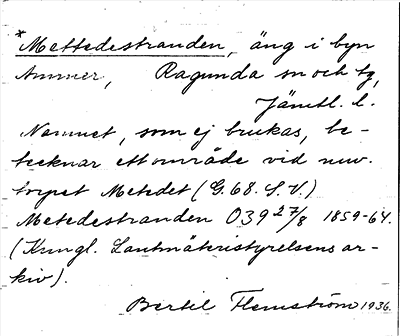 *Mettedestranden, äng i byn
Ammer, Ragunda sn och tg,
Jämtl. l.
Namnet, som ej brukas, be-
tecknar ett område vid nuv.
torpet Metedet (G.68. S.V.)
Metedestranden O39 27/8 1859-64.
(Kungl. Lantmäteristyrelsens ar-
kiv).
Bertil Flemström 1936.